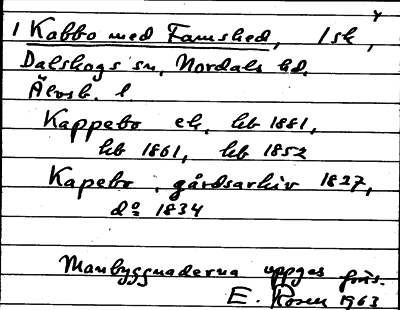 1 Kabbo med Famshed, 1 sk,
Dalskogs sn, Nordals hd.
Älvsb. l.
Kappebo ek, hb 1881,
hb 1861, hb 1852
Kapebo, gårdsarkiv 1827,
do 1834
Manbyggnaderna uppges
E. Rosen 1963